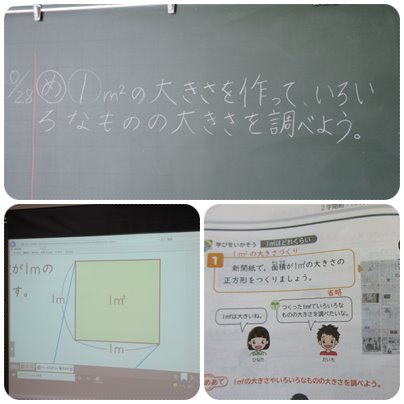 10/28 め ① m²の大きさを作って、いろい
ろなものの大きさを調べよう。
が1mの
す。
1m
1m²
1m
学びをいかそう 1m²はどれくらい
1m²の大きさづくり
1 新聞紙で、面積が1m²の大きさの
正方形をつくりましょう。
省略
1m²は大きいね。
つくった1m²でいろいろな
ものの大きさを調べたいな。
ひなた
だいち
めあて 1m²の大きさやいろいろなものの大きさを調べよう。